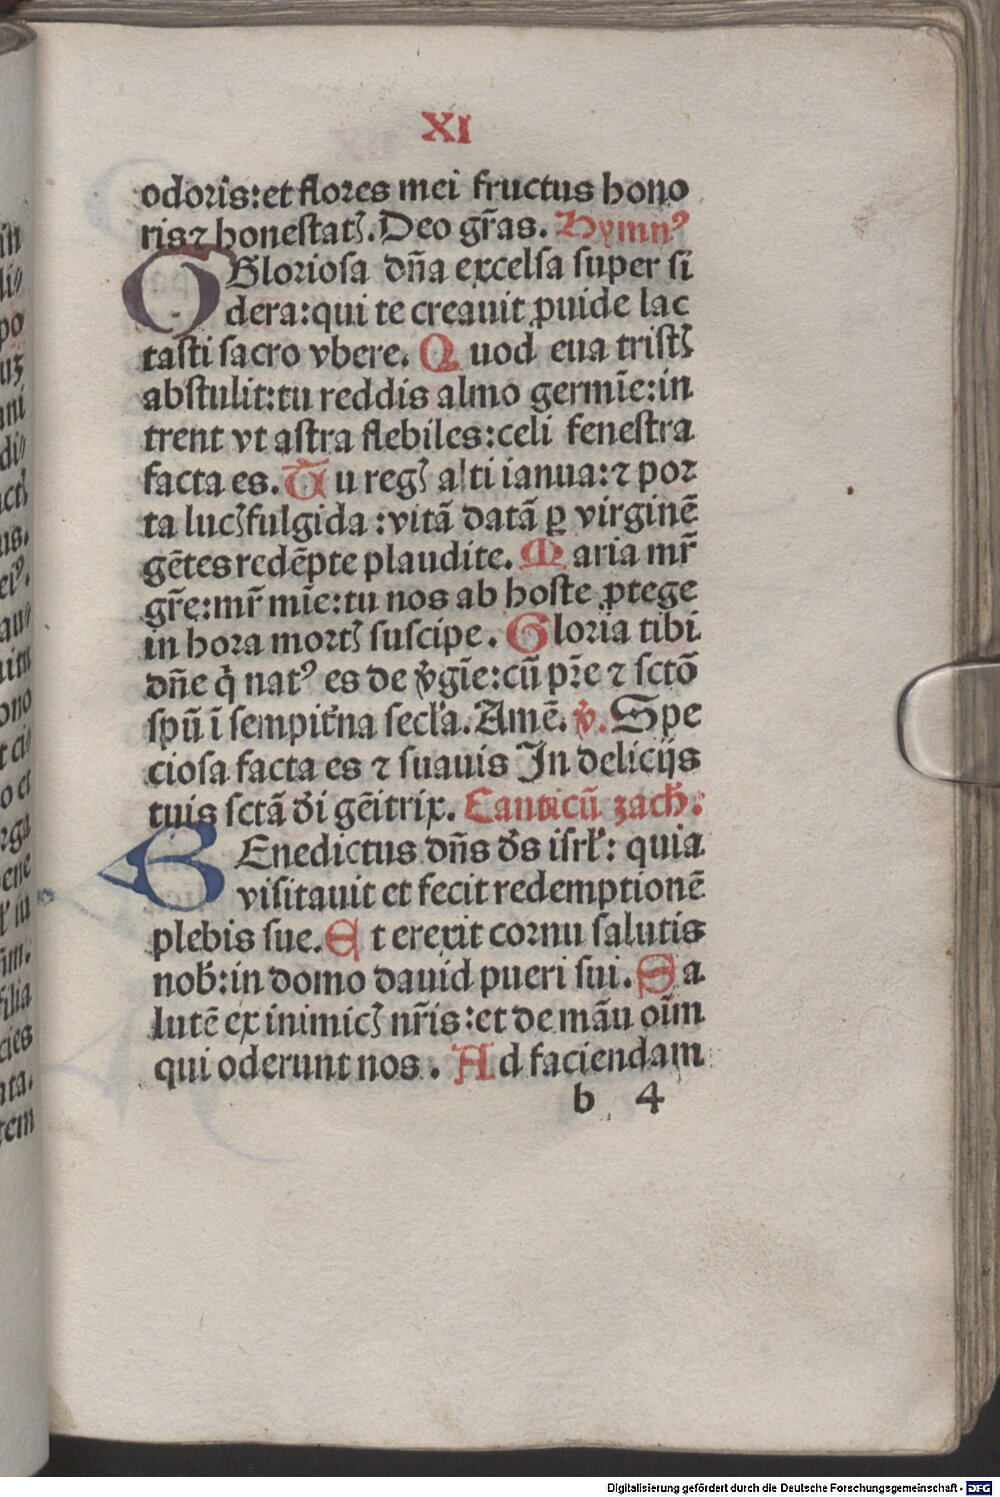 XI
odoris:et flores mei fructus hono
ris⁊ honestatꝭ. Deo gr̃as. Hymnꝰ
O Gloriosa dña excelsa super si
dera:qui te creauit ꝓuide lac
tasti sacro vbere. Quod eua tristꝭ
abstulit:tu reddis almo germīe:in
trent vt astra flebiles:celi fenestra
facta es. Tu regꝭ alti ianua:⁊ por
ta lucꝭ fulgida:vitã datã ꝑ virginẽ
gẽtes redẽpte plaudite. Maria mr̃
gr̃e:mr̃ mīe:tu nos ab hoste ꝓtege
in hora mortꝭ suscipe. Gloria tibi
dñe q̇ natꝰ es de v̓gīe:cũ pr̃e ⁊ sctõ
spũ ī sempit̓na secl̓a. Amẽ. v̓. Spe
ciosa facta es ⁊ suauis In delicijs
tuis sctã di̓ gẽitrix. Canticũ zach̓.
BEnedictus dñs ds̓ isrl̓: quia
visitauit et fecit redemptionẽ
plebis sue. Et erexit cornu salutis
nob̓:in domo dauid pueri sui. Sa
lutẽ ex inimicꝭ nr̃is:et de mãu oīm
qui oderunt nos. Ad faciendam
b 4
Digitalisierung gefördert durch die Deutsche Forschungsgemeinschaft - DFG